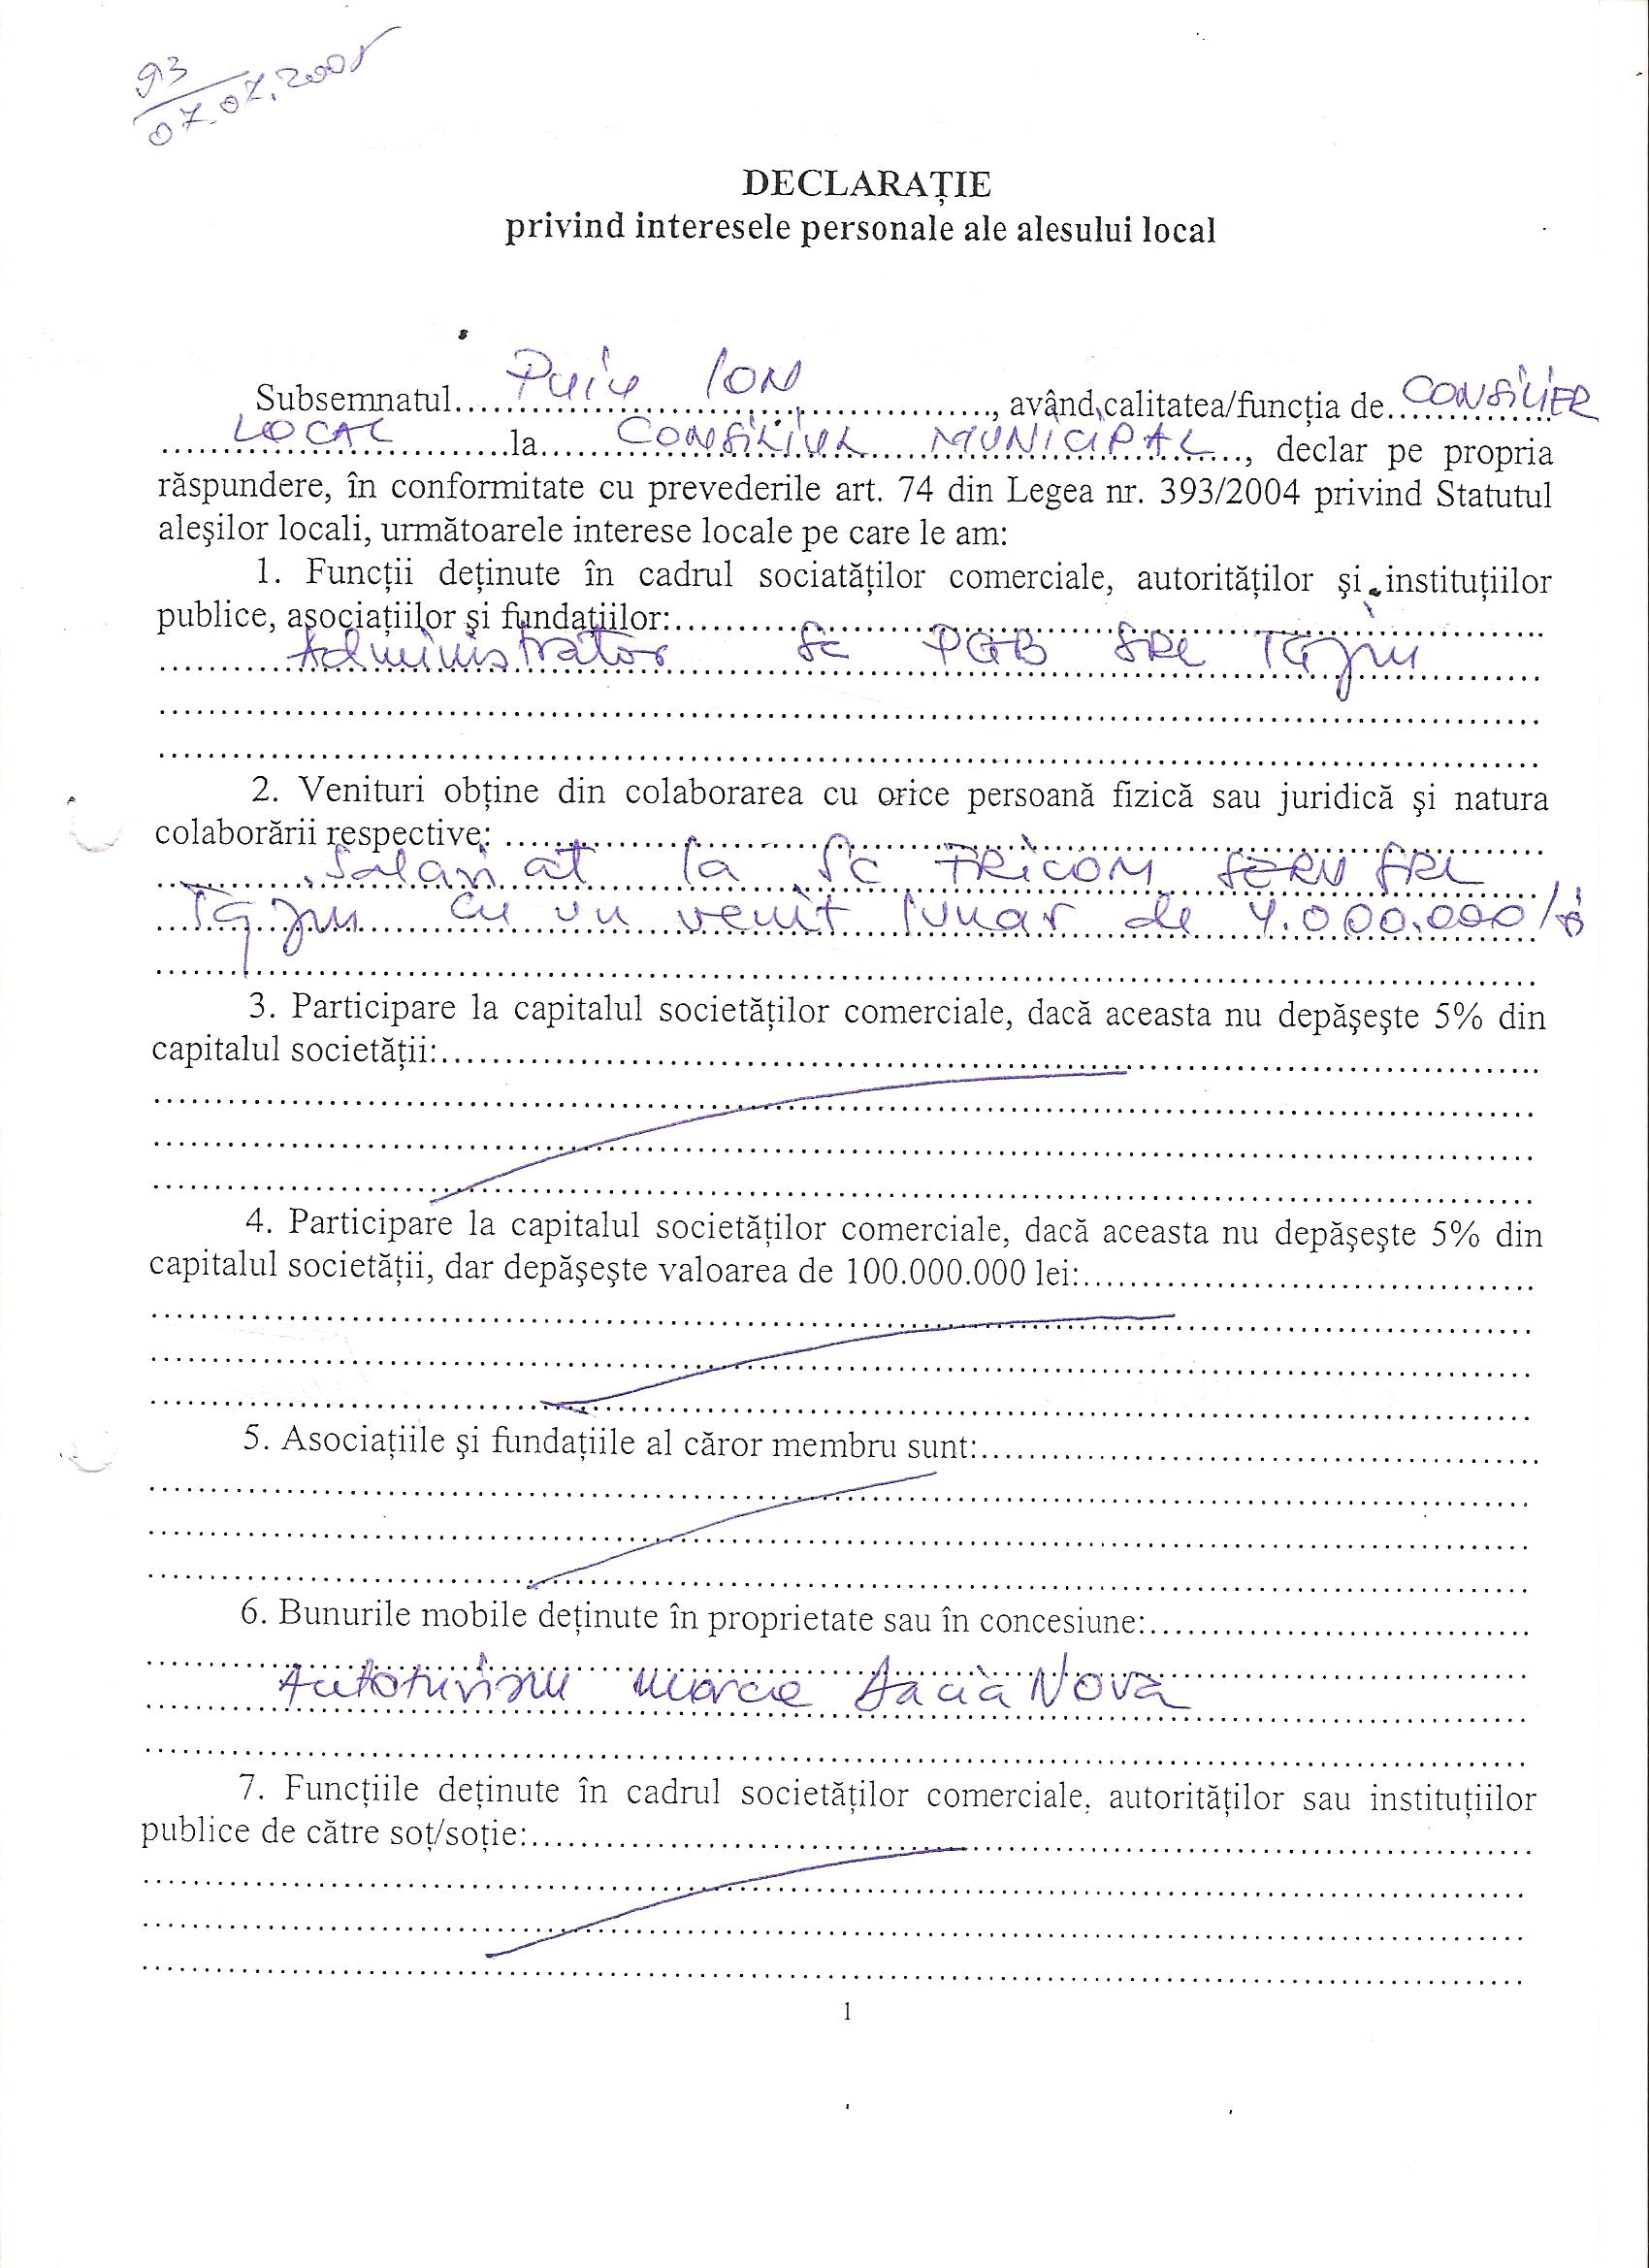 93
07.07.2008
DECLARAŢIE
privind interesele personale ale alesului local
Subsemnatul....Puiu ION...., având calitatea/funcţia de....CONSILIER
....LOCAL....la....CONSILIUL MUNICIPAL...., declar pe propria
răspundere, în conformitate cu prevederile art. 74 din Legea nr. 393/2004 privind Statutul
aleşilor locali, următoarele interese locale pe care le am:
1. Funcţii deţinute în cadrul sociatăţilor comerciale, autorităţilor şi instituţiilor
publice, asociaţiilor şi fundaţiilor:....
Administrator SC PGB SRL TG Jiu
2. Venituri obţine din colaborarea cu orice persoană fizică sau juridică şi natura
colaborării respective: ....
Salariat la SC TRICOM SERV SRL
TG Jiu cu un venit lunar de 4.000.000/
3. Participare la capitalul societăţilor comerciale, dacă aceasta nu depăşeşte 5% din
capitalul societăţii:....
4. Participare la capitalul societăţilor comerciale, dacă aceasta nu depăşeşte 5% din
capitalul societăţii, dar depăşeşte valoarea de 100.000.000 lei:....
5. Asociaţiile şi fundaţiile al căror membru sunt:....
6. Bunurile mobile deţinute în proprietate sau în concesiune:....
Autoturism marca Dacia Nova
7. Funcţiile deţinute în cadrul societăţilor comerciale, autorităţilor sau instituţiilor
publice de către soţ/soţie:....
1